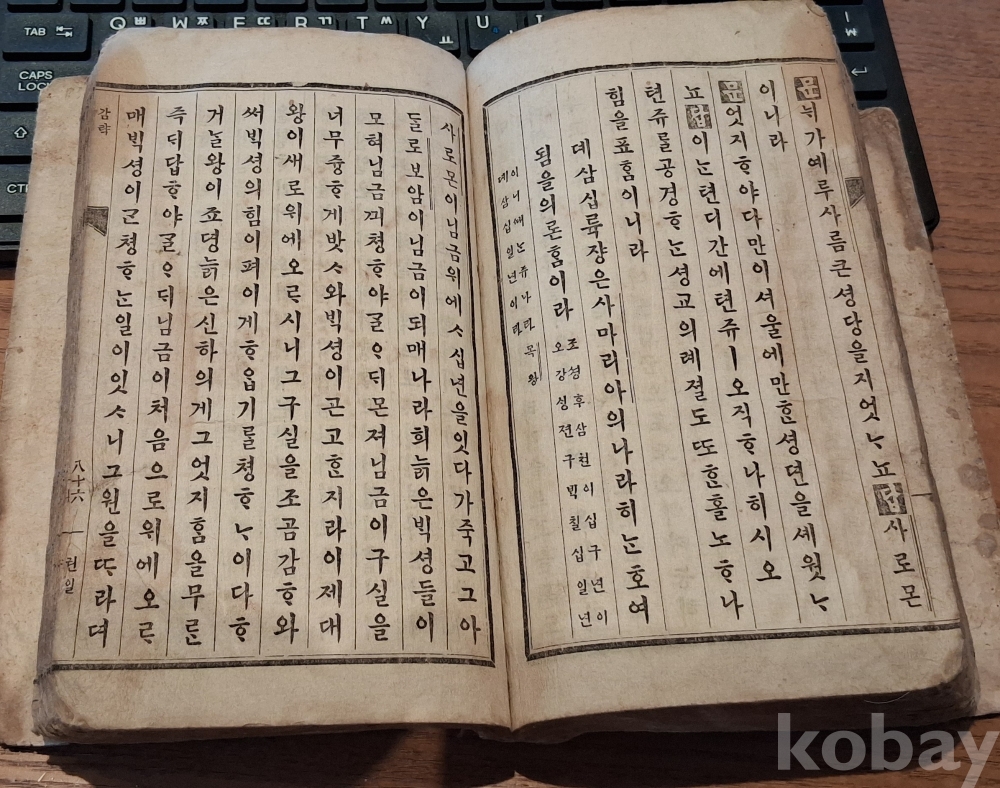 문 뉘가예루사름큰셩당을지엇ᄂᆞ뇨 답 사로몬
이니라
문 엇지ᄒᆞ야다만이셔울에만ᄒᆞᆫ셩뎐을셰웟ᄂᆞ
뇨 답 이ᄂᆞᆫ텬디간에텬쥬ㅣ오직ᄒᆞ나히시오
텬쥬ᄅᆞᆯ공경ᄒᆞᄂᆞᆫ셩교의례졀도ᄯᅩᄒᆞᆫ홀노ᄒᆞ나
힘을표ᄒᆞᆷ이니라
뎨삼십륙쟝은사마리아의나라히ᄂᆞᆫ호여
됨을의론ᄒᆞᆷ이라
조셩후삼쳔이십구년이
오강셩젼구ᄇᆡᆨ칠십일년
이니ᄯᅢᄂᆞᆫ쥬나라목왕
뎨삼십일년이라
사로몬이님금위에ᄉᆞ십년을잇다가죽고그아
ᄃᆞᆯ로보암이님금이되매나라희늙은ᄇᆡᆨ셩들이
모혀님금ᄭᅴ쳥ᄒᆞ야ᄀᆞᆯᄋᆞᄃᆡ몬져님금이구실을
너무즁ᄒᆞ게밧ᄉᆞ와ᄇᆡᆨ셩이곤고ᄒᆞᆫ지라이제대
왕이새로위에오ᄅᆞ시니그구실을조곰감ᄒᆞ와
써ᄇᆡᆨ셩의힘이펴이게ᄒᆞ옵기ᄅᆞᆯ쳥ᄒᆞᄂᆞ이다ᄒᆞ
거ᄂᆞᆯ왕이죠뎡늙은신하의게그엇지ᄒᆞᆷ을무ᄅᆞᆫ
즉ᄃᆡ답ᄒᆞ야ᄀᆞᆯᄋᆞᄃᆡ님금이처음으로위에오ᄅᆞ
매ᄇᆡᆨ셩이ᄀᆞᆫ쳥ᄒᆞᄂᆞᆫ일이잇ᄉᆞ니그원을ᄯᆞ라며
감략
八十六
련일
TAB
CAPS
LOCK
kobay